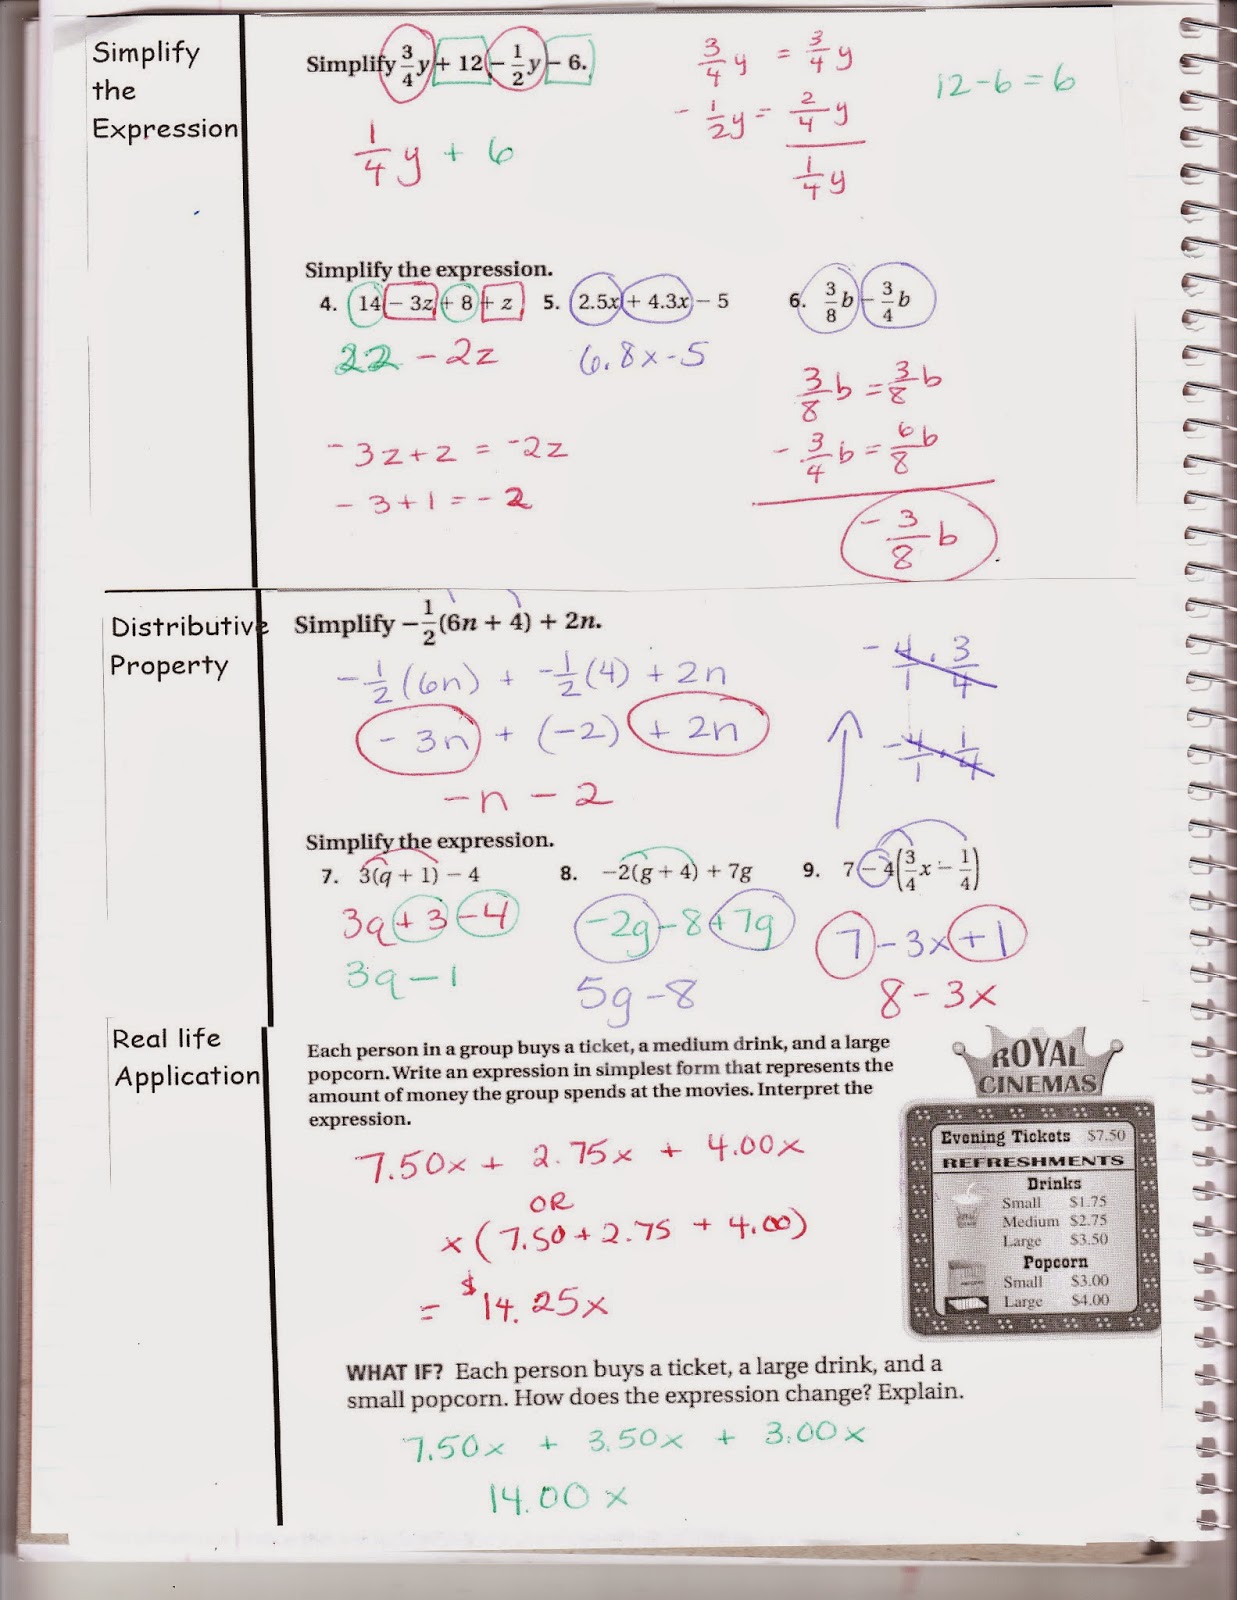 Simplify
the
Expression
Simplify 3/4 y + 12 - 1/2 y - 6.
1/4 y + 6
3/4 y = 3/4 y
- 1/2 y = 2/4 y
1/4 y
12 - 6 = 6
Simplify the expression.
4. 14 - 3z + 8 + z
22 - 2z
-3z + z = -2z
-3 + 1 = -2
5. 2.5x + 4.3x - 5
6.8x - 5
6. 3/8 b - 3/4 b
3/8 b = 3/8 b
- 3/4 b = 6/8 b
- 3/8 b
Distributive
Property
Simplify -1/2 (6n + 4) + 2n.
-1/2 (6n) + -1/2 (4) + 2n
-3n + (-2) + 2n
-n - 2
-4/1 · 3/4
-4/1 · 1/4
Simplify the expression.
7. 3(q + 1) - 4
3q + 3 - 4
3q - 1
8. -2(g + 4) + 7g
-2g - 8 + 7g
5g - 8
9. 7 - 4(3/4 x - 1/4)
7 - 3x + 1
8 - 3x
Real life
Application
Each person in a group buys a ticket, a medium drink, and a large
popcorn. Write an expression in simplest form that represents the
amount of money the group spends at the movies. Interpret the
expression.
7.50x + 2.75x + 4.00x
OR
x (7.50 + 2.75 + 4.00)
= $14.25x
ROYAL
CINEMAS
Evening Tickets $7.50
REFRESHMENTS
Drinks
Small $1.75
Medium $2.75
Large $3.50
Popcorn
Small $3.00
Large $4.00
WHAT IF? Each person buys a ticket, a large drink, and a
small popcorn. How does the expression change? Explain.
7.50x + 3.50x + 3.00x
14.00x